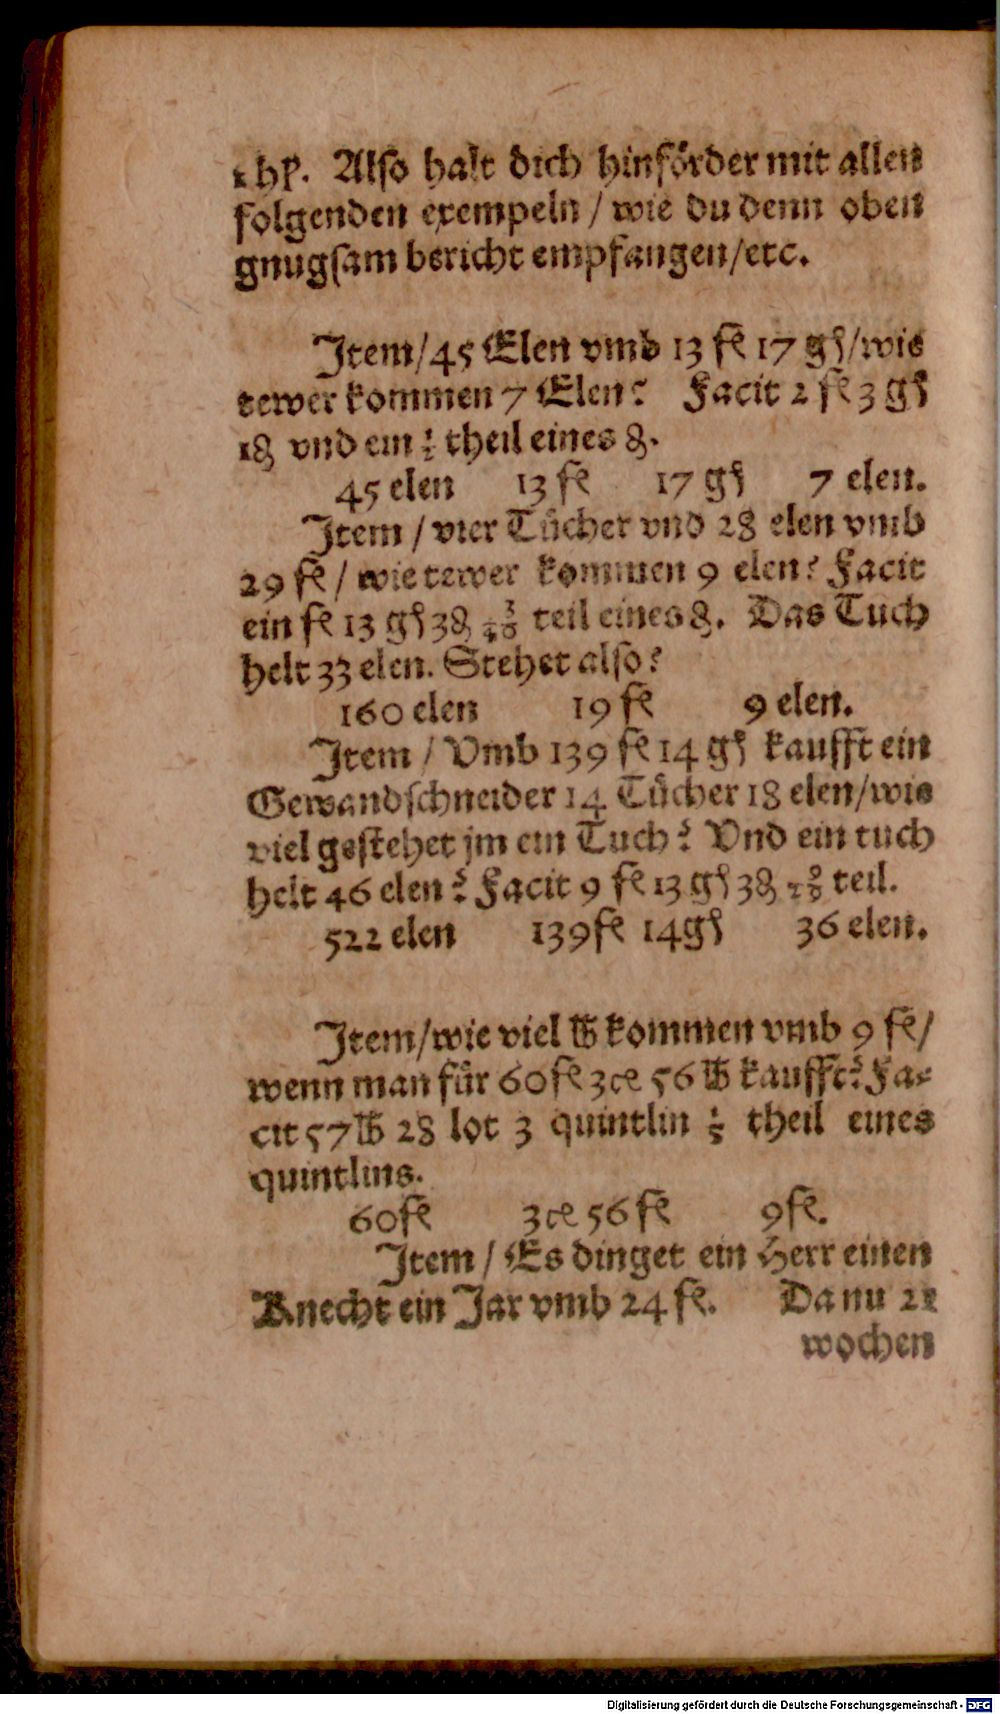 1 hł. Also halt dich hinförder mit allen
folgenden exempeln / wie du denn oben
gnugsam bericht empfangen/etc.
Item/45 Elen vmb 13 fl 17 gſ/wie
tewer kommen 7 Elen? Facit 2 fl 3 gſ
1₰ vnd ein ⅕ theil eines ₰.
45 elen 13 fl 17 gſ 7 elen.
Item / vier Tücher vnd 28 elen vmb
29 fl / wie tewer kommen 9 elen? Facit
ein fl 13 gſ 3₰ teil eines ₰. Das Tuch
helt 33 elen. Stehet also?
160 elen 19 fl 9 elen.
Item / Vmb 139 fl 14 gſ kaufft ein
Gewandschneider 14 Tücher 18 elen/wie
viel gestehet jm ein Tuch? Vnd ein tuch
helt 46 elen? Facit 9 fl 13 gſ 3₰ teil.
522 elen 139fl 14gſ 36 elen.
Item/wie viel ℔ kommen vmb 9 fl/
wenn man für 60fl 3ce 56℔ kaufft? Fa-
cit 57℔ 28 lot 3 quintlin ⅕ theil eines
quintlins.
60fl 3ce 56 fl 9fl.
Item / Es dinget ein Herr einen
Knecht ein Jar vmb 24 fl. Da nu 21
wochen
Digitalisierung gefördert durch die Deutsche Forschungsgemeinschaft - DFG